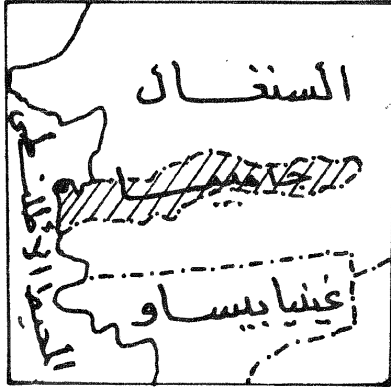 السنغال
جمبيا
غينيا بيساو
المحيط الأطلسي